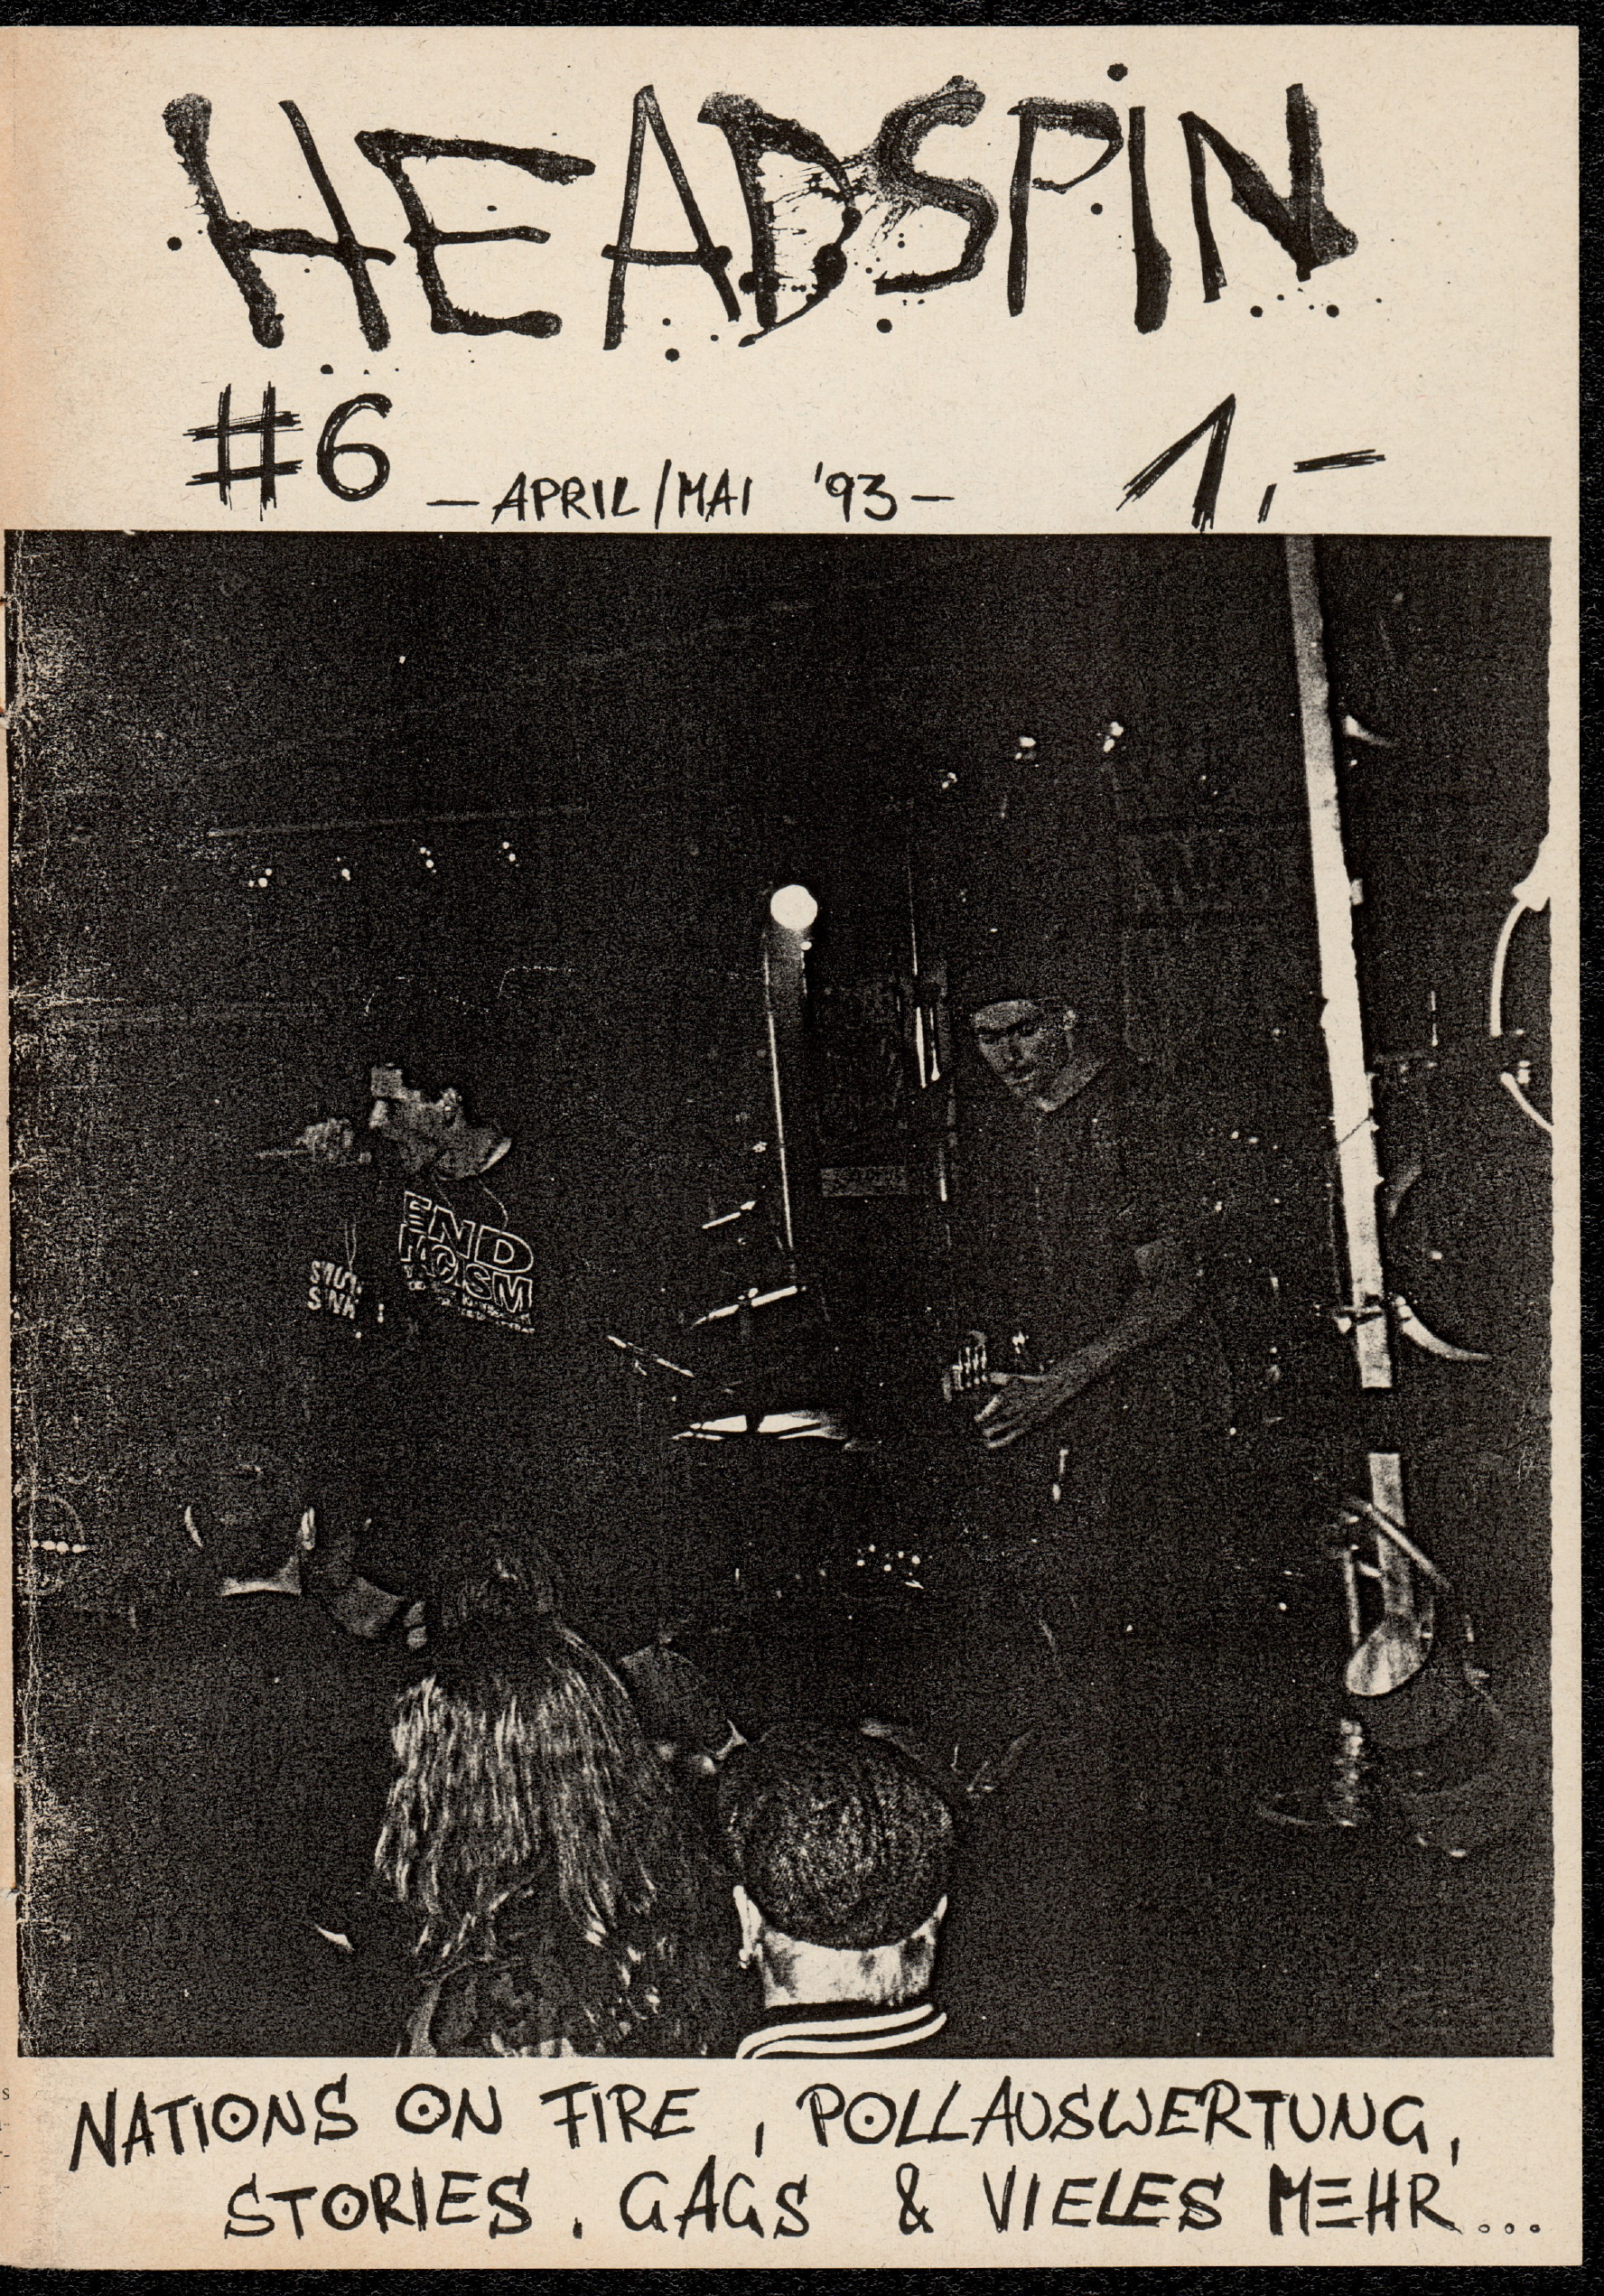 HEADSPIN
#6 – APRIL/MAI '93 – 1,-
END
RACISM
NATIONS ON FIRE, POLLAUSWERTUNG,
STORIES. GAGS & VIELES MEHR...